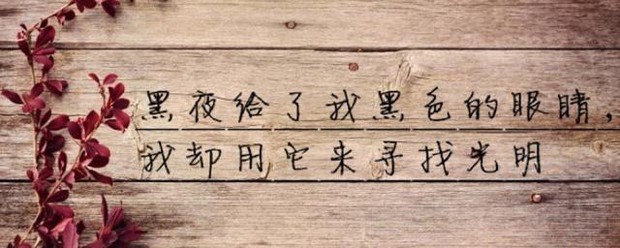 黑夜给了我黑色的眼睛，
我却用它来寻找光明